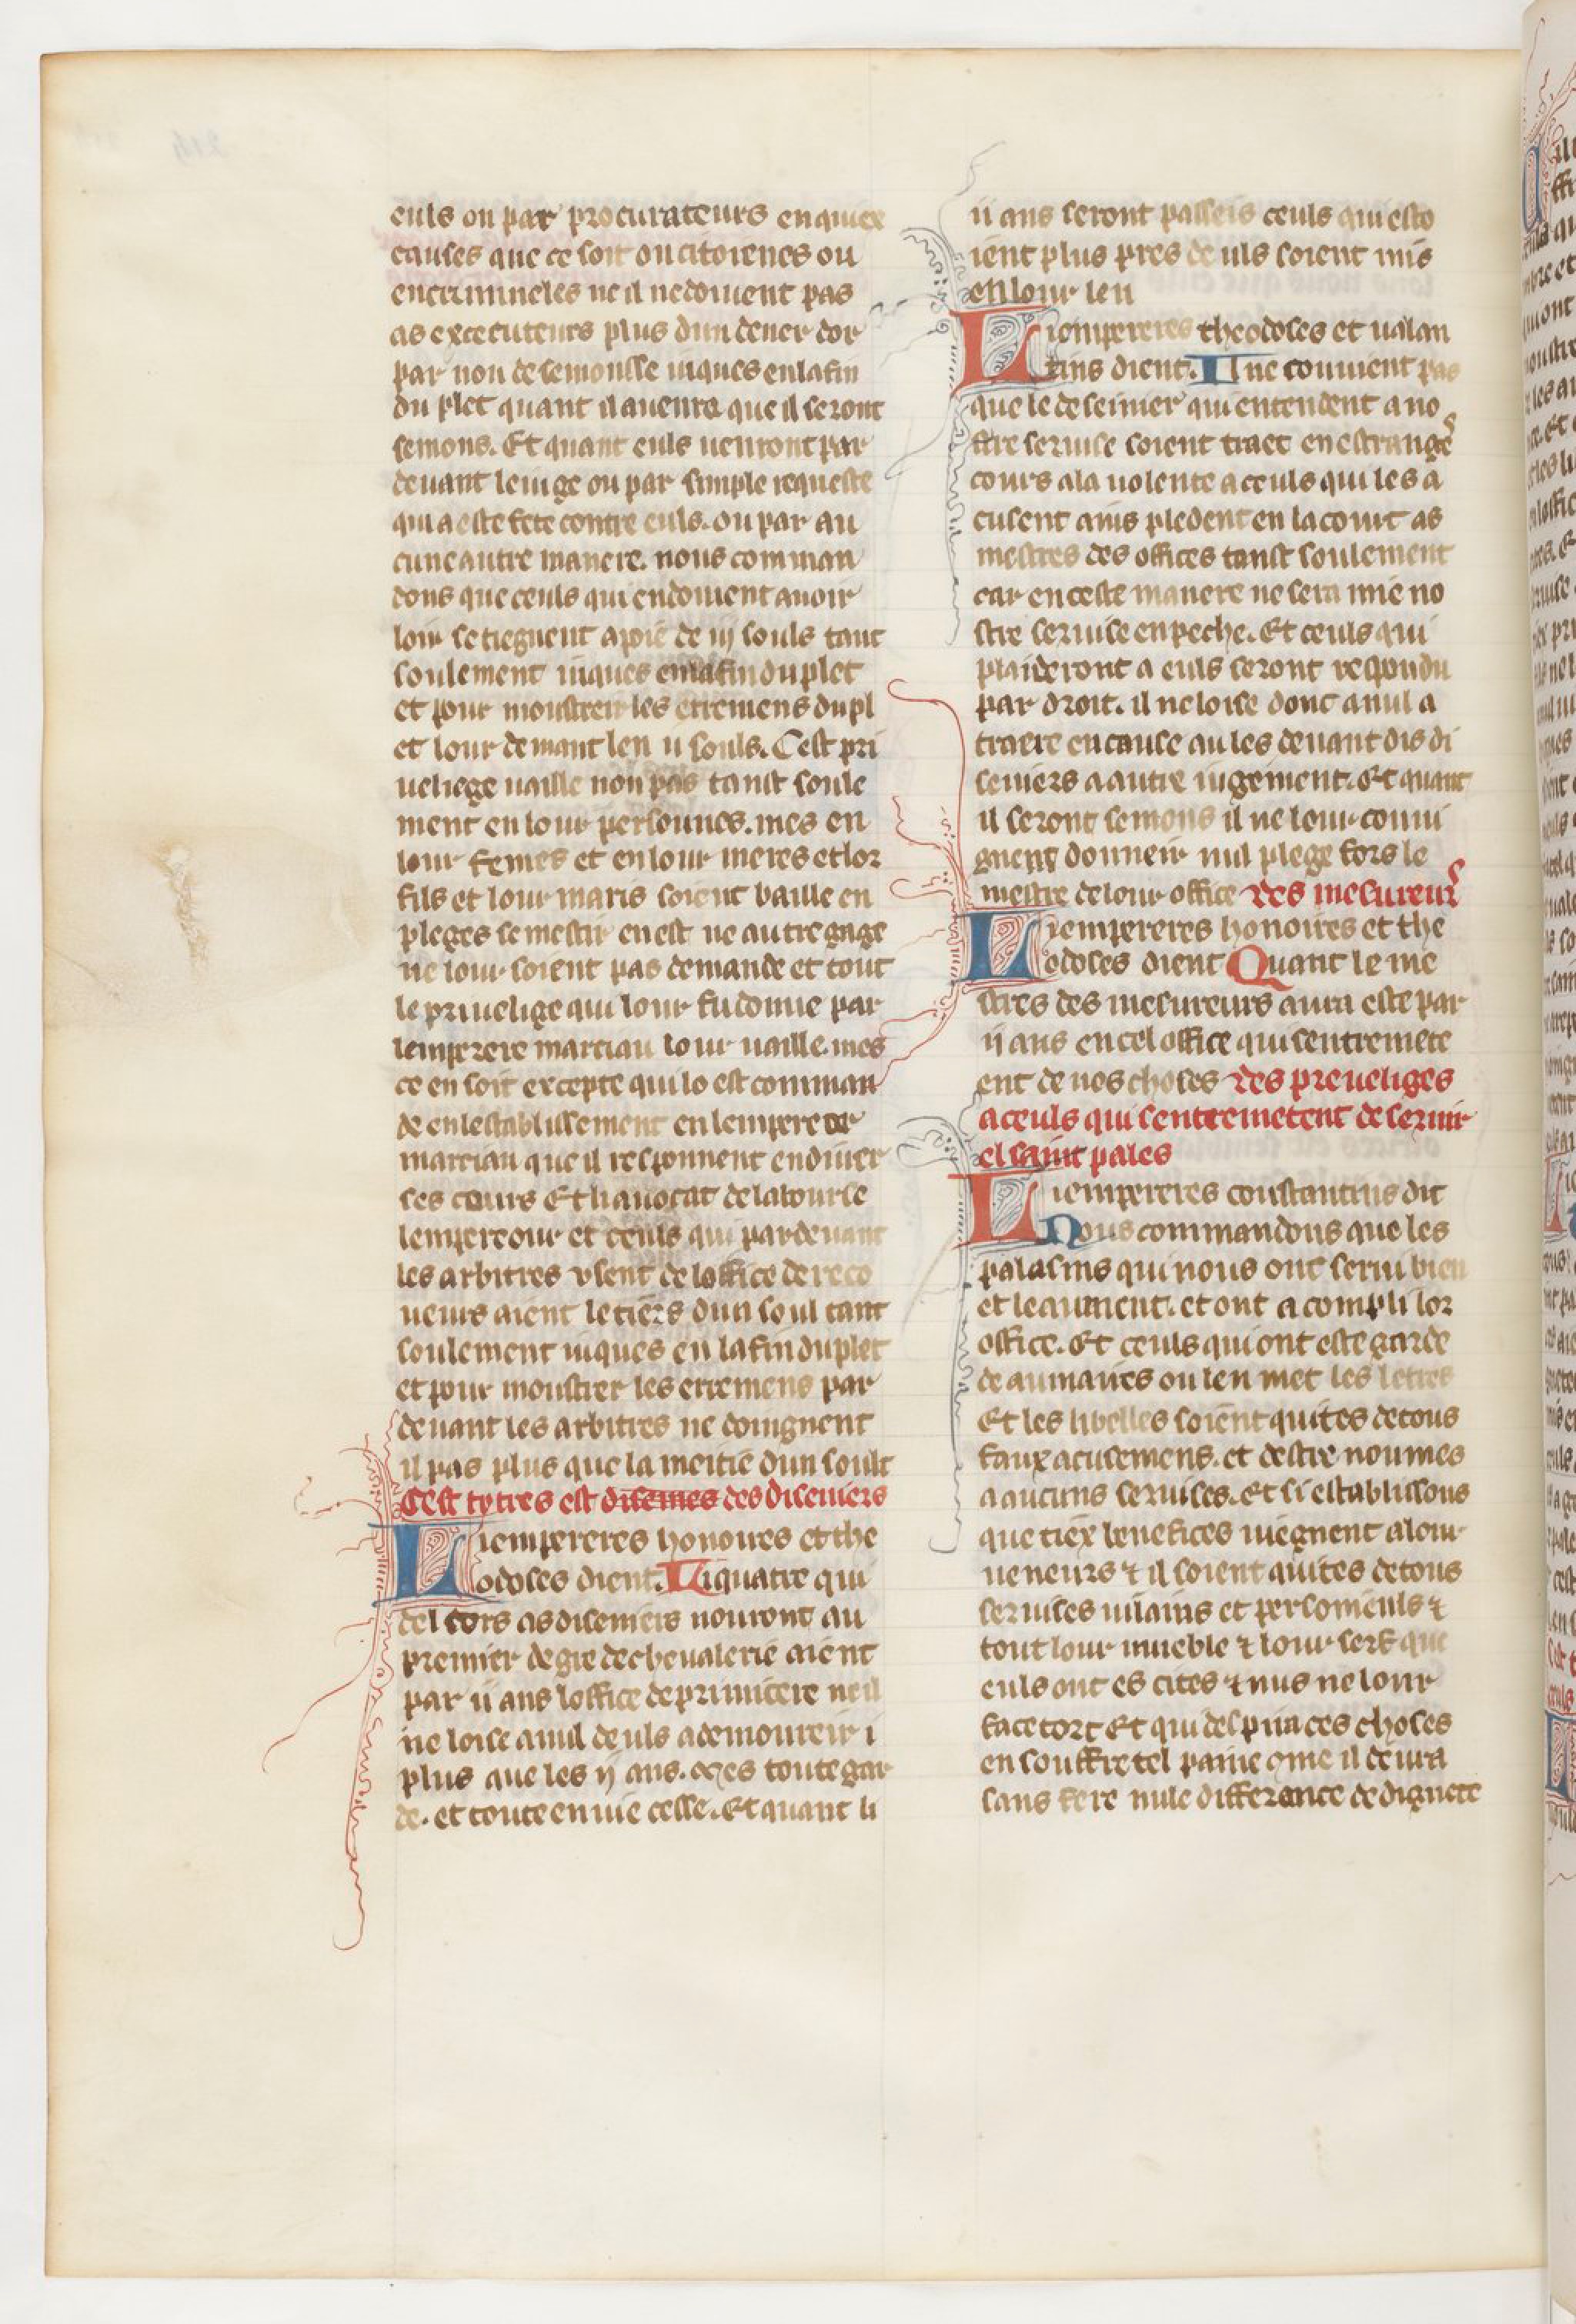 euls ou par procurateurs en quiex
causes que ce soit ou citoienes ou
encriminelles ne il nedoiuent pas
as execcuteurs plus dun dener dor
par non de semonsse iuques enlafin
du plet quant il auenra que il seront
semons. Et quant euls uenront par
deuant leiuge ou par simple requeste
qui a este fete contre euls. ou par au
cune autre manere. nous comman
dons que ceuls qui en doiuent auoir
lour se tiegnent apaié de iij souls tant
soulement iuques enlafin du plet
et pour moustreir les erremens du pl
et lour demant len ii souls. Cest pri
ueliege uaille non pas tanst soule
ment en lour persounes. mes en
lour femes et en lour meres et lor
fils et lour maris soient baille en
pleges se mestir en est ne autre gage
ne lour soient pas demande et tout
le priuelige qui lour fu donne par
lemperere marcian lour uaille. mes
ce en soit excepte qui lo est comman
de enlestablissement en lempereor
marcian que il responnent en diuer
ses cours Et liauocat delacourse
lempereour et ceuls qui pardeuant
les arbitres vsent de loffice de reco
ueurs aient letiers dun soul tant
soulement iuques en lafin du plet
et pour moustrer les erremens par
deuant les arbitres ne doingnent
il pas plus que la meitie dun soult
Cest tytres est disemes des diseniers
Liempereres honoires et the
odoses dient. Li quatre qui
del cors as diseniers uouront au
premier degre de cheualerie aient
par ii ans loffice de primicere ne il
ne loise a nul deuls a demoureir i
plus que les ij ans. Mes toute gar
de. et toute enuie cesse. Et quant li
ii ans seront passeis ceuls qui esto
ient plus pres deuls soient mis
en lour leu
Liempereres theodoses et ualan
tins dient. Il ne conuient pas
que le deseinier qui entendent a no
stre seruise soient traec en estrange
cours ala uolente a ceuls qui les a
cusent anis pledent en la court as
mestres des offices tanst soulement
car en ceste manere ne sera mie no
stre seruise enpeche. Et ceuls qui
plaideront a euls seront respondu
par droit. il ne loise donc a nul a
traere en cause au les deuant dis di
seniers a autre iugement. Et quant
il seront semons il ne lour conui
gnent donneir nul plege fors le
mestre de lour office Des mesureurs
Liempereres honoires et the
odoses dient Quant le me
stres des mesureurs aura este par
ii ans en cel office qui sentremete
ent de nos choses Des preueliges
a ceuls qui sentremetent de seruir
el saint pales
Liempereres constantins dit
Nous commandons que les
palasins qui nous ont serui bien
et leaument. et ont a compli lor
office. Et ceuls qui ont este garde
de aumaires ou len met les letres
Et les libelles soient quites detous
faux acusemens. et destre noumes
a aucuns seruises. Et si establissons
que tiex benefices uiegnent a lour
ueneurs & il soient quites detous
seruises uilains et persoineuls &
tout lour mueble & lour serf que
euls ont es cites & nus ne lour
face tort Et qui despira ces choses
en souffre tel paine ome il deura
sans fere nule differance de dignete